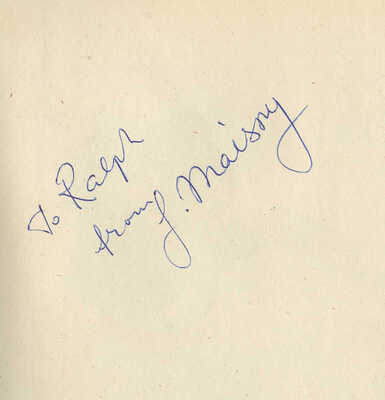 To Ralph
from J. Maisny